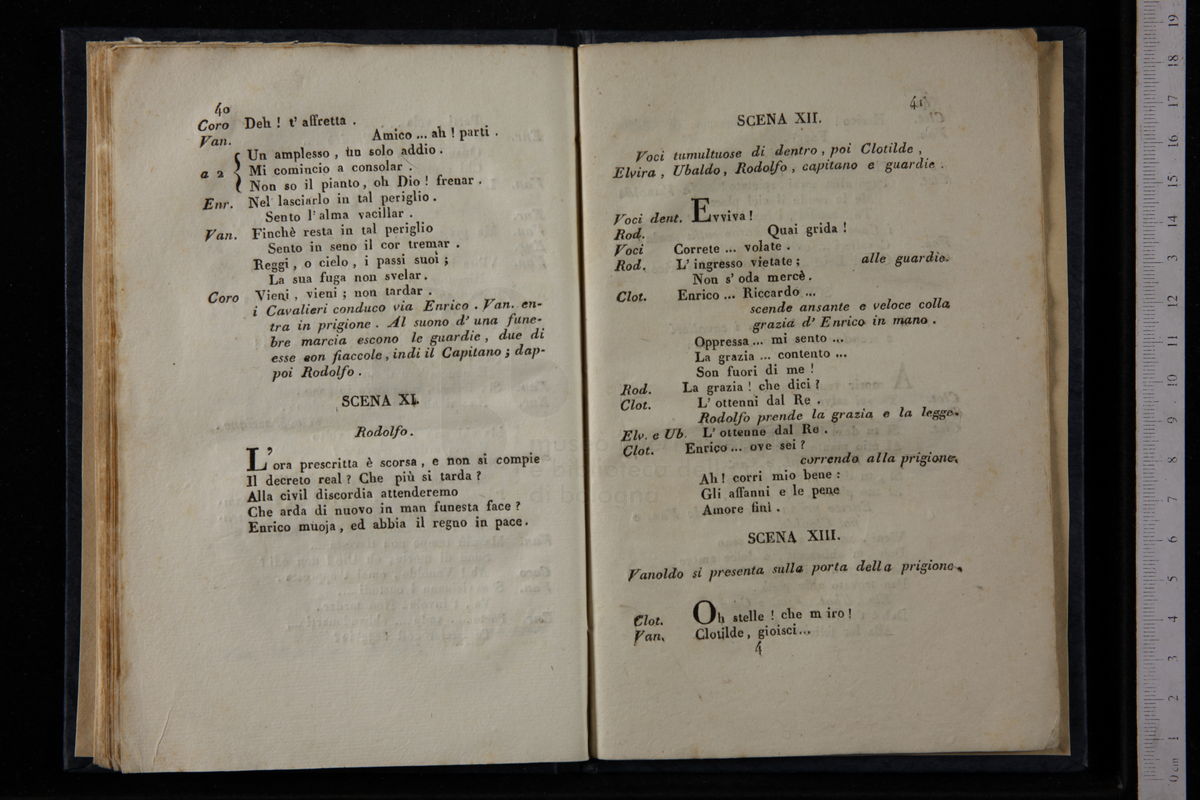 40
Coro Deh ! t' affretta .
Van. Amico ... ah ! parti .
a 2 { Un amplesso , un solo addio .
Mi comincio a consolar .
Non so il pianto , oh Dio ! frenar .
Enr. Nel lasciarlo in tal periglio .
Sento l' alma vacillar .
Van. Finchè resta in tal periglio
Sento in seno il cor tremar .
Reggi , o cielo , i passi suoi ;
La sua fuga non svelar .
Coro Vieni , vieni ; non tardar .
i Cavalieri conduco via Enrico . Van. en-
tra in prigione . Al suono d' una fune-
bre marcia escono le guardie , due di
esse con fiaccole , indi il Capitano ; dap-
poi Rodolfo .
SCENA XI.
Rodolfo .
L' ora prescritta è scorsa , e non si compie
Il decreto real ? Che più si tarda ?
Alla civil discordia attenderemo
Che arda di nuovo in man funesta face ?
Enrico muoja , ed abbia il regno in pace .
41
SCENA XII.
Voci tumultuose di dentro , poi Clotilde ,
Elvira , Ubaldo , Rodolfo , capitano e guardie .
Voci dent. Evviva !
Rod. Quai grida !
Voci Correte ... volate .
Rod. L' ingresso vietate ; alle guardie.
Non s' oda mercè .
Clot. Enrico ... Riccardo ...
scende ansante e veloce colla
grazia d' Enrico in mano .
Oppressa ... mi sento ...
La grazia ... contento ...
Son fuori di me !
Rod. La grazia ! che dici ?
Clot. L' ottenni dal Re .
Rodolfo prende la grazia e la legge.
Elv. e Ub. L' ottenne dal Re .
Clot. Enrico ... ove sei ?
correndo alla prigione.
Ah ! corri mio bene :
Gli affanni e le pene
Amore finì .
SCENA XIII.
Vanoldo si presenta sulla porta della prigione.
Clot. Oh stelle ! che m iro !
Van. Clotilde , gioisci ...
4